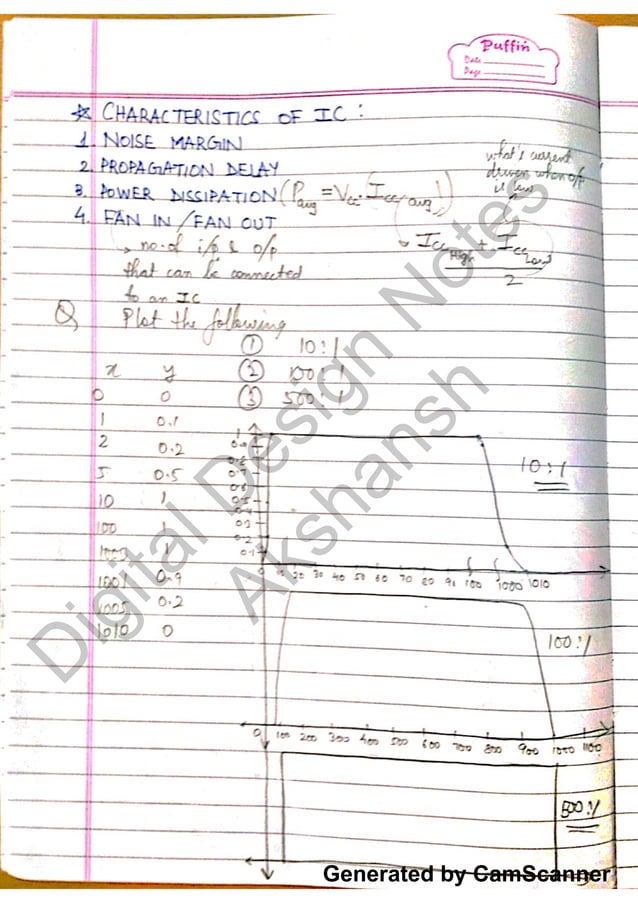 Puffin
Date
Page
* CHARACTERISTICS OF IC :
1. NOISE MARGIN
2. PROPAGATION DELAY
3. POWER DISSIPATION (Pavg = Vcc . Icc, avg)
what's current
driven when o/p
is low
Icc High + Icc Low
2
4. FAN IN / FAN OUT
→ no. of i/p & o/p
that can be connected
to an IC
Q, Plot the following
① 10:1
② 100:1
③ 500:1
x y
0 0
1 0.1
2 0.2
5 0.5
10 1
100 1
1000 1
1001 0.9
1005 0.2
1010 0
1
0.9
0.8
0.7
0.6
0.5
0.4
0.3
0.2
0.1
0 10 20 30 40 50 60 70 80 91 100 1000 1010
10:1
100:1
0 100 200 300 400 500 600 700 800 900 1000 1100
500:1
Digital Design Notes
Akshansh
Generated by CamScanner